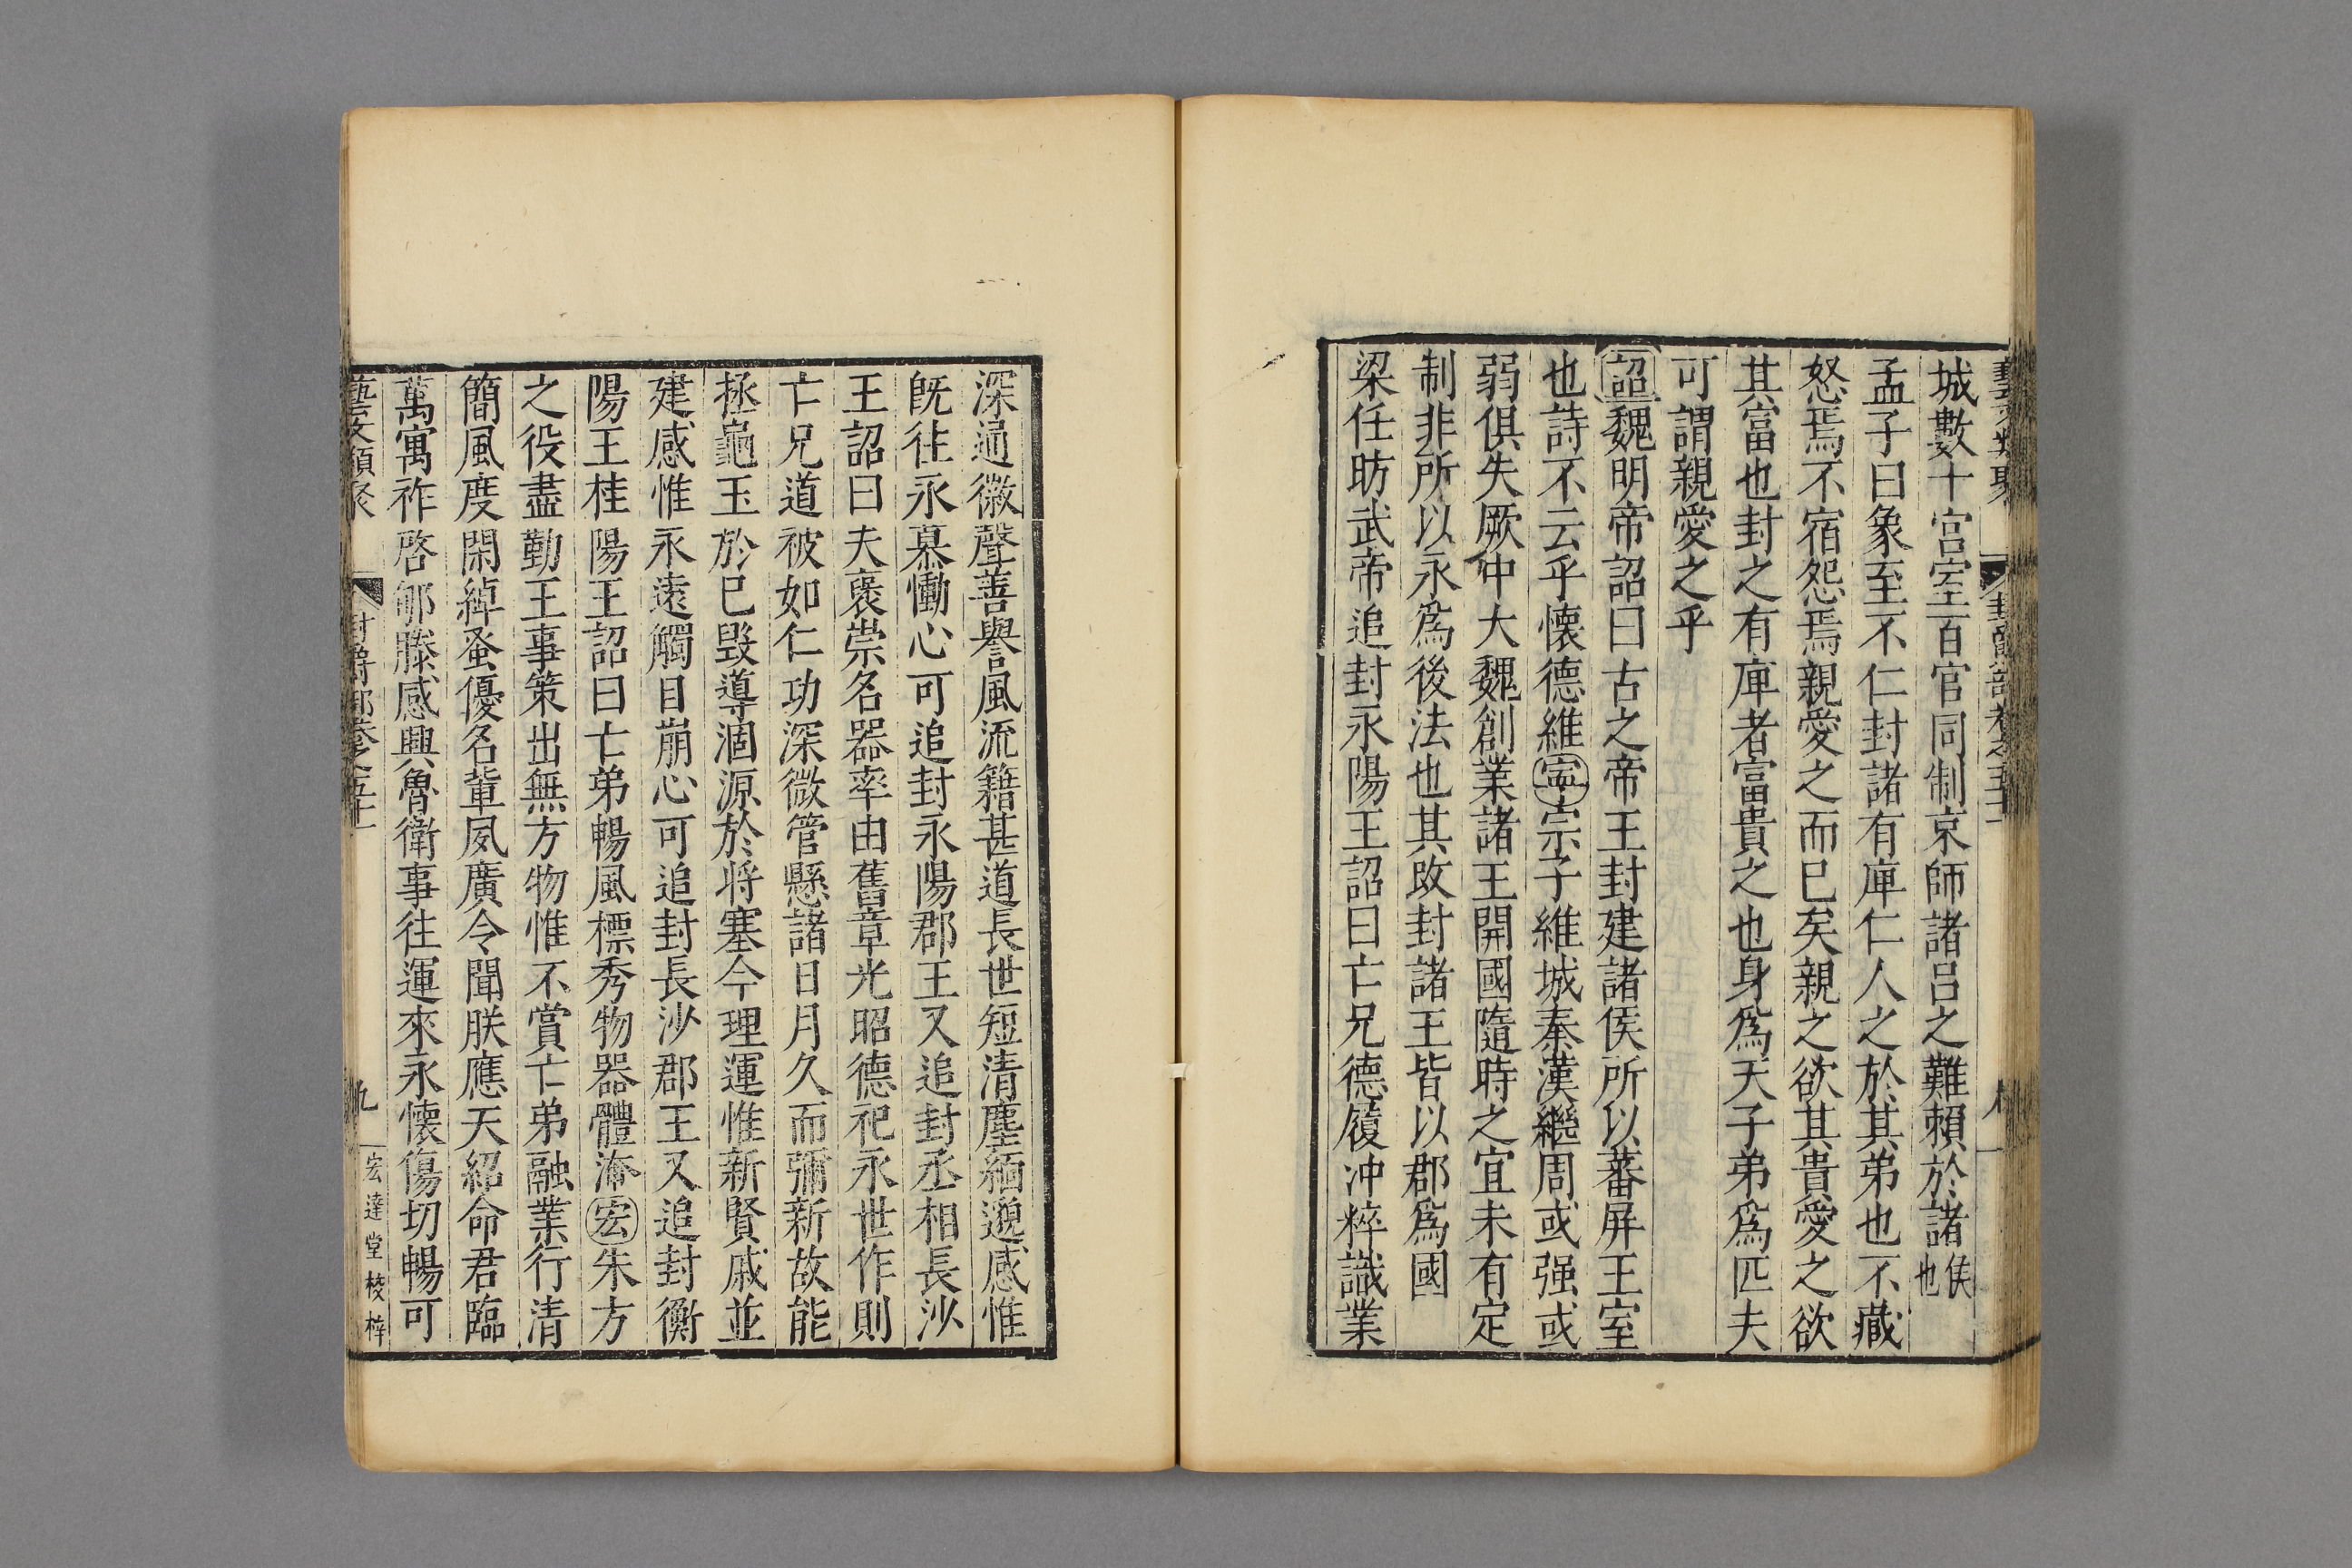 城數十宮室百官同制京師諸呂之難賴於諸侯也
孟子曰象至不仁封諸有庳仁人之於其弟也不藏
怒焉不宿怨焉親愛之而已矣親之欲其貴愛之欲
其富也封之有庳者富貴之也身爲天子弟爲匹夫
可謂親愛之乎
詔魏明帝詔曰古之帝王封建諸侯所以蕃屏王室
也詩不云乎懷德維寧宗子維城秦漢繼周或强或
弱俱失厥中大魏創業諸王開國隨時之宜未有定
制非所以永爲後法也其改封諸王皆以郡爲國
梁任昉武帝追封永陽王詔曰亡兄德履冲粹識業
深通徽聲善譽風流籍甚道長世短清塵緬邈感惟
既往永慕慟心可追封永陽郡王又追封丞相長沙
王詔曰夫褒崇名器率由舊章光昭德祀永世作則
亡兄道被如仁功深微管懸諸日月久而彌新故能
拯龜玉於已毀導涸源於將塞今理運惟新賢戚並
建感惟永遠觸目崩心可追封長沙郡王又追封衡
陽王桂陽王詔曰亡弟暢風標秀物器體淹宏朱方
之役盡勤王事策出無方物惟不賞亡弟融業行清
簡風度閑綽蚤優名輩夙廣令聞朕應天紹命君臨
萬寓祚啓郇滕感興魯衛事往運來永懷傷切暢可
藝文類聚 封爵部卷之五十一 九 宏達堂校梓